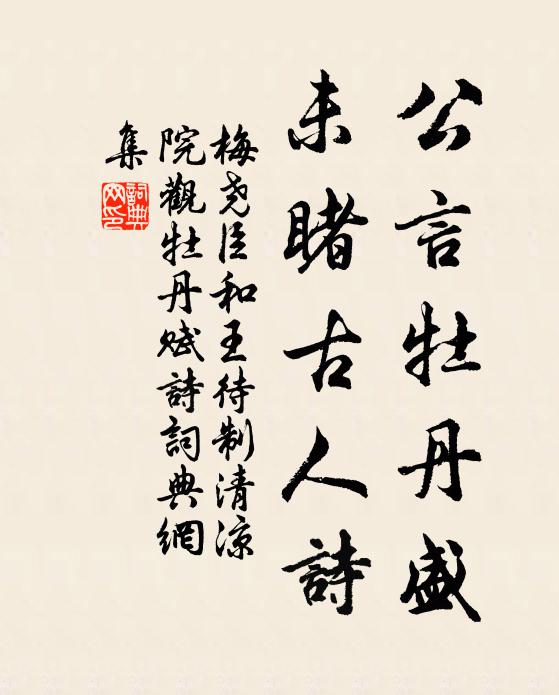 公言牡丹盛
未睹古人詩
梅尧臣和王待制清凉
院觀牡丹赋詩詞典網
集
詞典网印